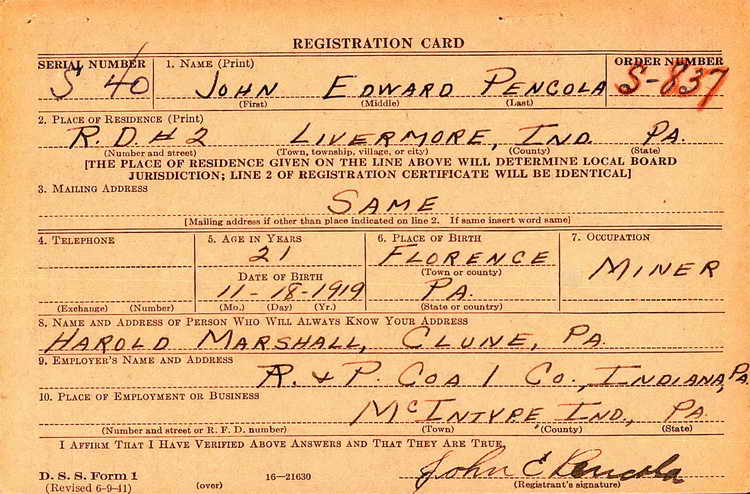 REGISTRATION CARD
SERIAL NUMBER 1. NAME (Print) ORDER NUMBER
S 40 JOHN EDWARD PENCOLA S-837
(First) (Middle) (Last)
2. PLACE OF RESIDENCE (Print)
R.D.# 2 LIVERMORE, IND. PA.
(Number and street) (Town, township, village, or city) (County) (State)
[THE PLACE OF RESIDENCE GIVEN ON THE LINE ABOVE WILL DETERMINE LOCAL BOARD
JURISDICTION; LINE 2 OF REGISTRATION CERTIFICATE WILL BE IDENTICAL]
3. MAILING ADDRESS
SAME
[Mailing address if other than place indicated on line 2. If same insert word same]
4. TELEPHONE 5. AGE IN YEARS 6. PLACE OF BIRTH 7. OCCUPATION
21 FLORENCE
(Town or county)
DATE OF BIRTH MINER
11-18-1919 PA.
(Exchange) (Number) (Mo.) (Day) (Yr.) (State or country)
8. NAME AND ADDRESS OF PERSON WHO WILL ALWAYS KNOW YOUR ADDRESS
HAROLD MARSHALL, CLUNE, PA.
9. EMPLOYER'S NAME AND ADDRESS
R. & P. COAL CO., INDIANA, PA.
10. PLACE OF EMPLOYMENT OR BUSINESS
McINTYPE IND., PA.
(Number and street or R. F. D. number) (Town) (County) (State)
I AFFIRM THAT I HAVE VERIFIED ABOVE ANSWERS AND THAT THEY ARE TRUE.
John E Pencola
D. S. S. Form 1 16—21630
(Revised 6-9-41) (over) (Registrant's signature)